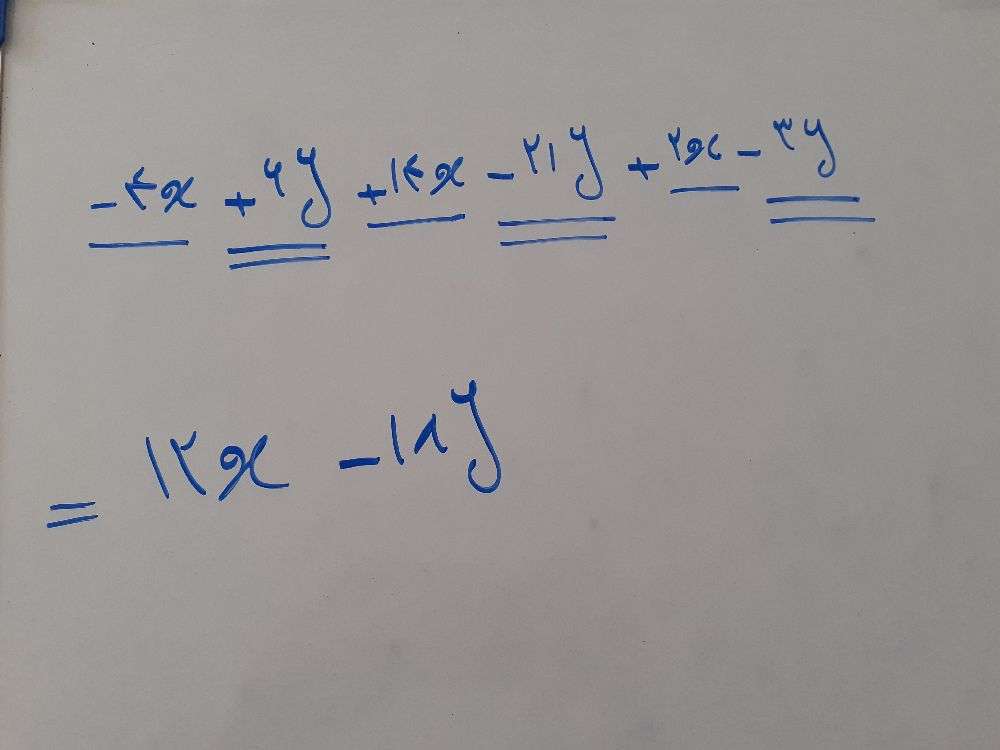 -۴x + ۶y + ۱۴x - ۲۱y + ۲x - ۳y
= ۱۲x - ۱۸y